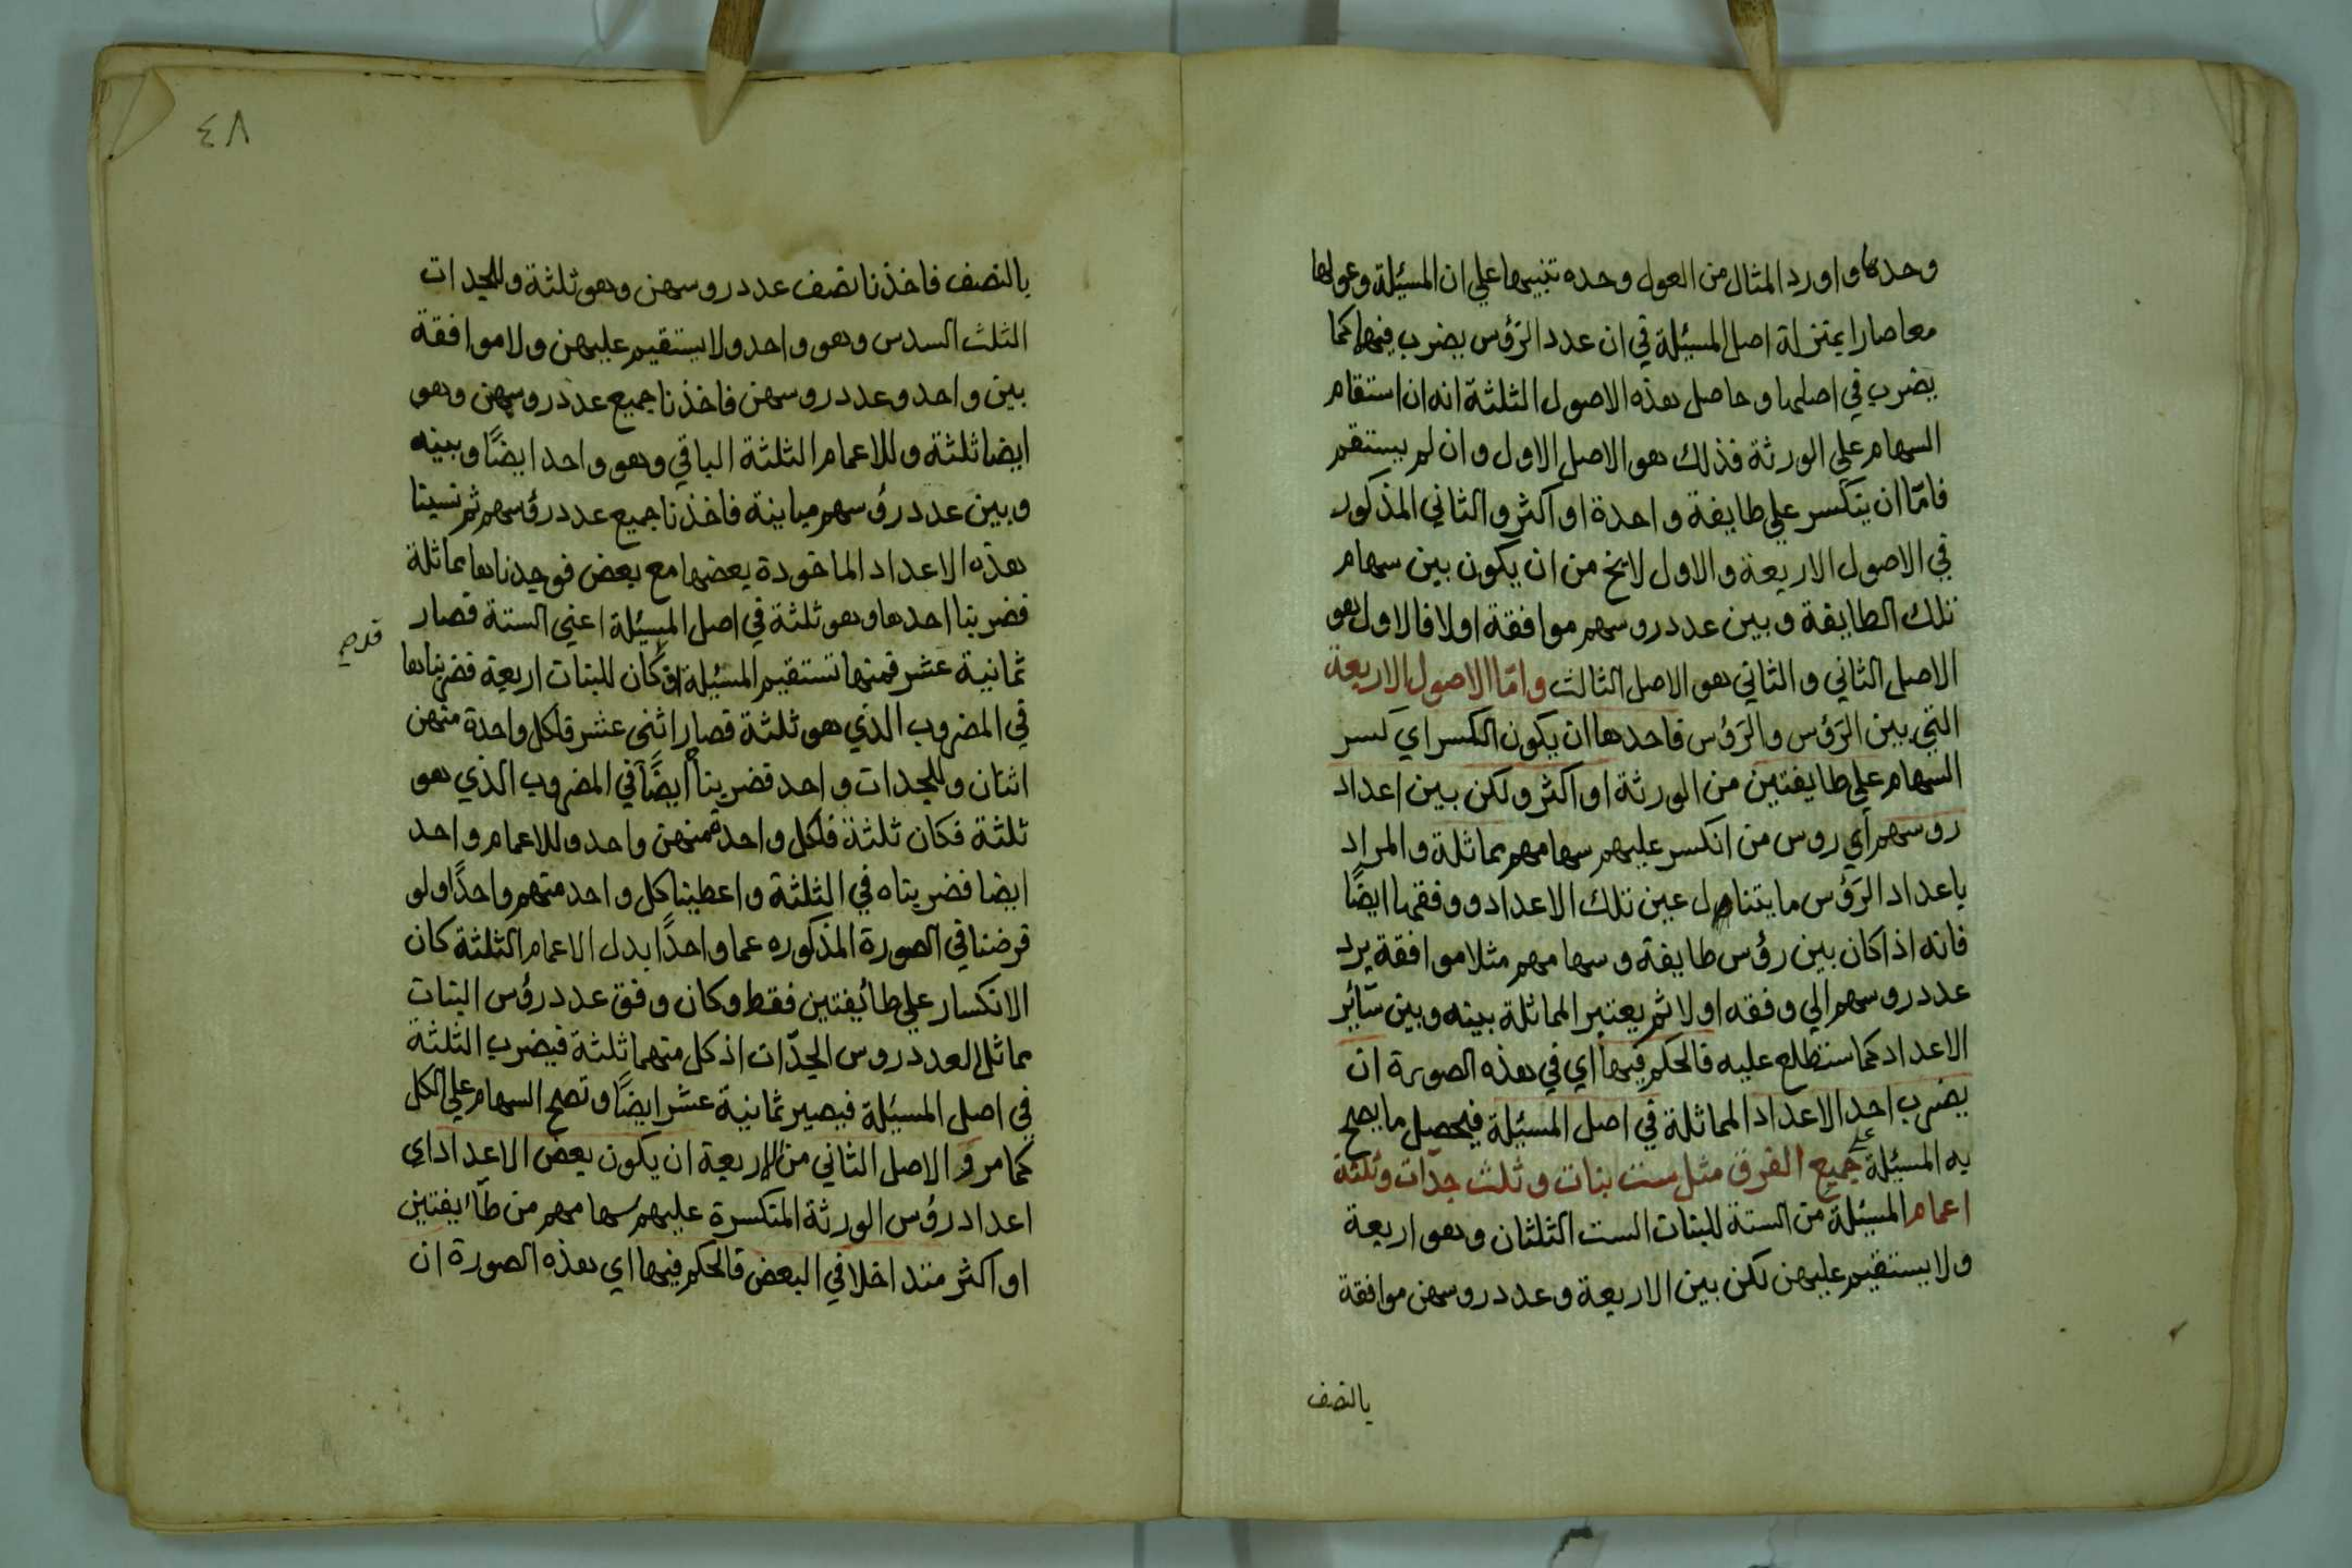 وحدها واورد المثال من العول وحده تنبيها علي ان المسئلة وعولها
معا صارا بمنزلة اصل المسئلة في ان عدد الرؤس يضرب فيها كما
يضرب في اصلها وحاصل هذه الاصول الثلثة انه ان استقام
السهام علي الورثة فذلك هو الاصل الاول وان لم يستقم
فامّا ان ينكسر علي طايفة واحدة او اكثر والثاني المذكور
في الاصول الاربعة والاول لايخ من ان يكون بين سهام
تلك الطايفة وبين عدد روسهم موافقة اولا فالاول هو
الاصل الثاني والثاني هو الاصل الثالث وامّا الاصول الاربعة
التي بين الرؤس والرؤس فاحدها ان يكون الكسر اي كسر
السهام علي طايفتين من الورثة او اكثر ولكن بين اعداد
روسهم اي روس من انكسر عليهم سهامهم مماثلة والمراد
باعداد الرؤس ما يتناول عين تلك الاعداد ووفقها ايضًا
فانه اذا كان بين رؤس طايفة وسهامهم مثلا موافقة يرد
عدد روسهم الي وفقه اولا ثم يعتبر المماثلة بينه وبين سائر
الاعداد كما ستطلع عليه فالحكم فيها اي في هذه الصورة ان
يضرب احد الاعداد المماثلة في اصل المسئلة فيحصل ما يصح
به المسئلة علي جميع الفرق مثل ست بنات وثلث جدّات وثلثة
اعمام المسئلة من الستة للبنات الست الثلثان وهو اربعة
ولا يستقيم عليهن لكن بين الاربعة وعدد روسهن موافقة
بالنصف
٧٤
بالنصف فاخذنا نصف عدد روسهن وهو ثلثة وللجدات
الثلث السدس وهو واحد ولا يستقيم عليهن ولا موافقة
بين واحد وعدد روسهن فاخذنا جميع عدد روسهن وهو
ايضا ثلثة وللاعمام الثلثة الباقي وهو واحد ايضًا وبينه
وبين عدد رؤسهم مباينة فاخذنا جميع عدد رؤسهم ثم نسبنا
هذه الاعداد الماخوذة بعضها مع بعض فوجدناها مماثلة
فضربنا احدها وهو ثلثة في اصل المسئلة اعني الستة فصار
ثمانية عشر فمنها تستقيم المسئلة اذ كان للبنات اربعة فضربناها
في المضروب الذي هو ثلثة فصار اثنى عشر فلكل واحدة منهن
اثنان وللجدات واحد فضربنا ايضًا في المضروب الذي هو
ثلثة فكان ثلثة فلكل واحدة منهن واحد وللاعمام واحد
ايضا فضربناه في الثلثة واعطينا كل واحد منهم واحدًا ولو
فرضنا في الصورة المذكوره عما واحدًا بدل الاعمام الثلثة كان
الانكسار علي طائفتين فقط وكان وفق عدد رؤس البنات
مماثل العدد روس الجدّات اذ كل منهما ثلثة فيضرب الثلثة
في اصل المسئلة فيصير ثمانية عشر ايضًا وتصح السهام علي الكل
كما مر و الاصل الثاني من الاربعة ان يكون بعض الاعداد اي
اعداد رؤس الورثة المنكسرة عليهم سهامهم من طآئفتين
او اكثر متداخلا في البعض فالحكم فيها اي هذه الصورة ان